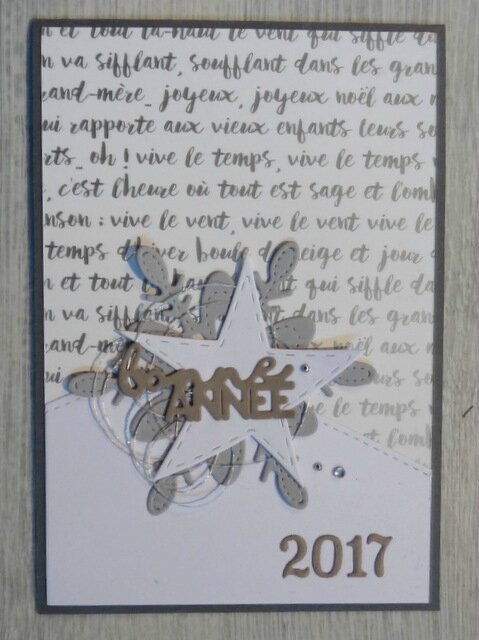 n et tout là-haut le vent qui siffle da
n va sifflant, soufflant dans les gran
rand-mère_ joyeux, joyeux noël aux m
ui rapporte aux vieux enfants leurs so
rts_ oh ! vive le temps, vive le temps v
, c'est l'heure où tout est sage et l'omb
nson : vive le vent, vive le vent vive le
temps d'hiver boule de neige et jour d
n et tout là-ha qui siffle da
n va sifflan dans les gran
and-mè noël aux m
ui fants leurs so
bonne
ANNÉE
le temps v
et l'omb
vive le
2017